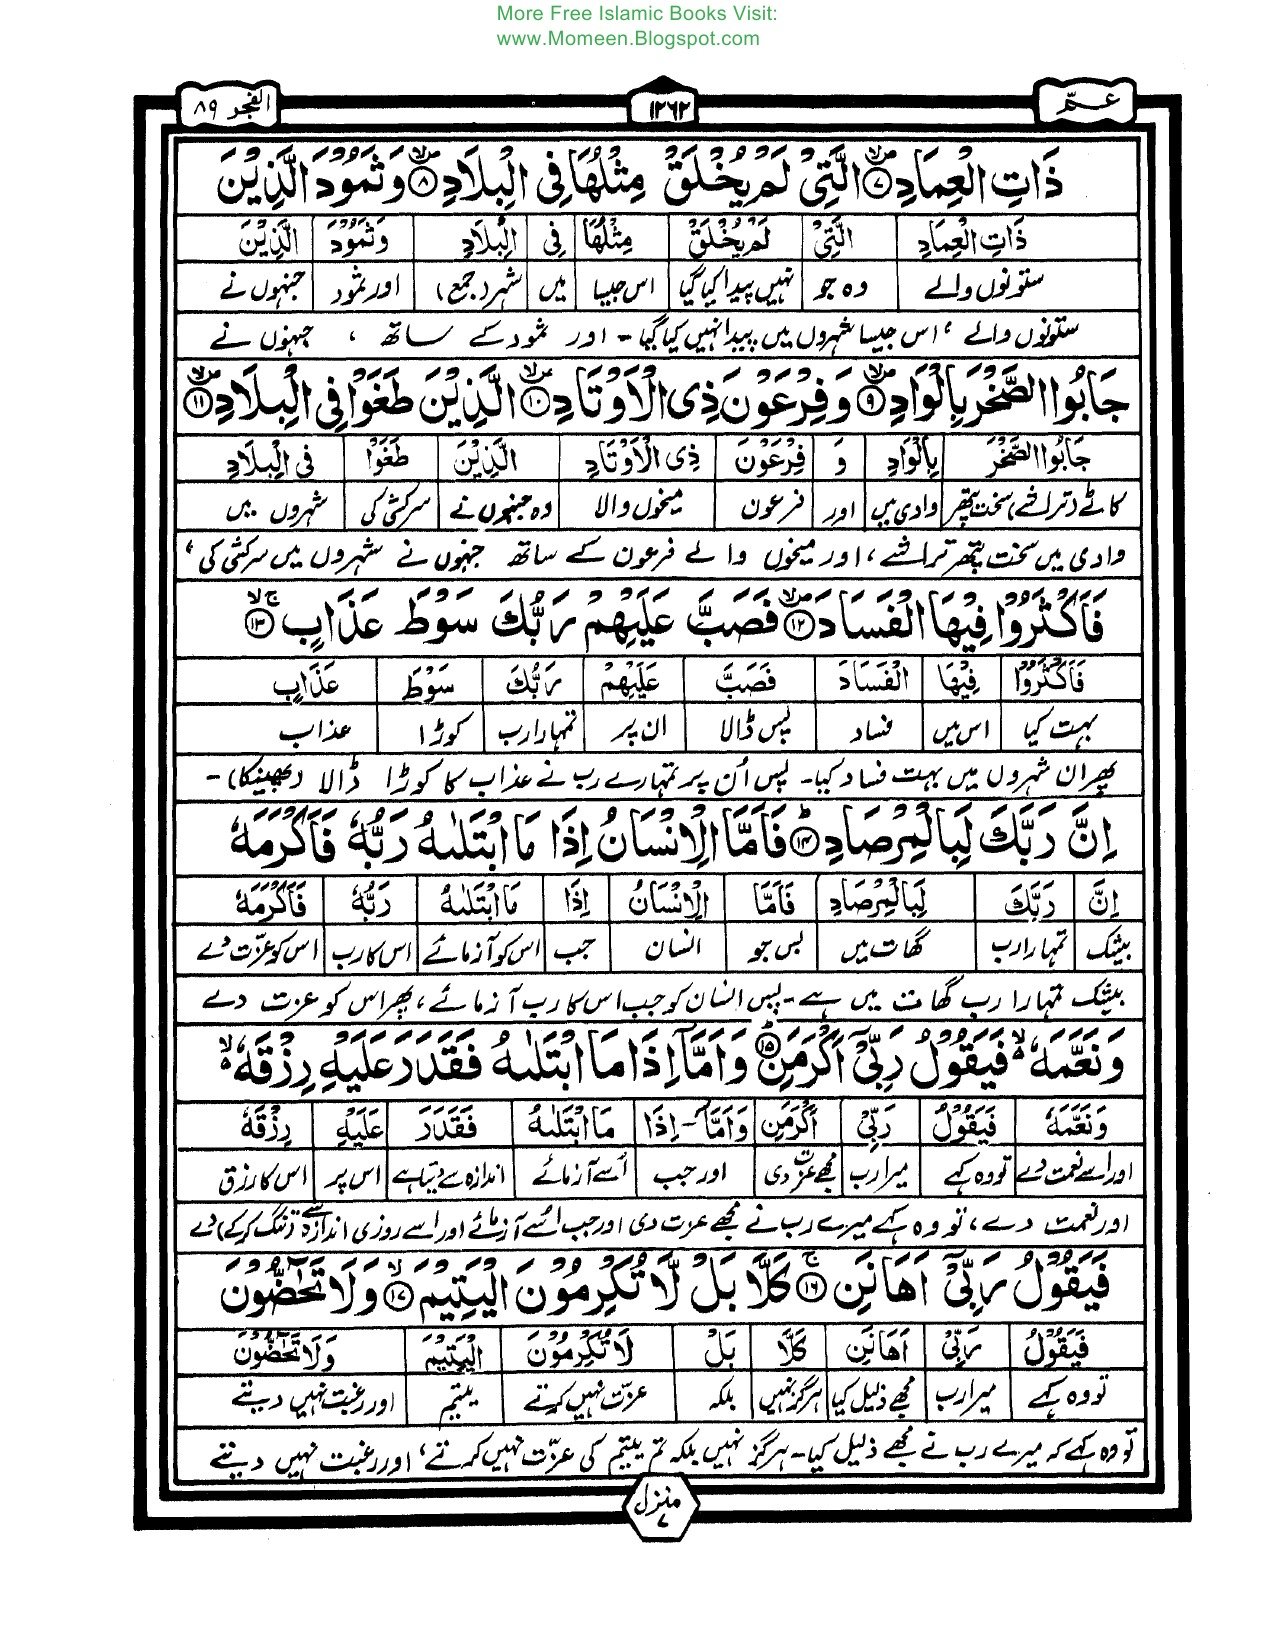 More Free Islamic Books Visit:
www.Momeen.Blogspot.com
عـمّ ١٢٦٢ الفجر ٨٩
ذَاتِ الْعِمَادِ ﴿٧﴾ الَّتِیْ لَمْ یُخْلَقْ مِثْلُهَا فِی الْبِلَادِ ﴿٨﴾ وَثَمُوْدَ الَّذِیْنَ
ذَاتِ الْعِمَادِ الَّتِیْ لَمْ یُخْلَقْ مِثْلُهَا فِی الْبِلَادِ وَثَمُوْدَ الَّذِیْنَ
ستونوں والے وہ جو نہیں پیدا کیا گیا اس جیسا میں شہر (جمع) اور ثمود جنہوں نے
ستونوں والے ، اس جیسا شہروں میں پیدا نہیں کیا گیا ۔ اور ثمود کے ساتھ ، جنہوں نے
جَابُوا الصَّخْرَ بِالْوَادِ ﴿٩﴾ وَفِرْعَوْنَ ذِی الْاَوْتَادِ ﴿١٠﴾ الَّذِیْنَ طَغَوْا فِی الْبِلَادِ ﴿١١﴾
جَابُوا الصَّخْرَ بِالْوَادِ وَ فِرْعَوْنَ ذِی الْاَوْتَادِ الَّذِیْنَ طَغَوْا فِی الْبِلَادِ
کاٹے (تراشے) سخت پتھر وادی میں اور فرعون میخوں والا وہ جنہوں نے سرکشی کی شہروں میں
وادی میں سخت پتھر تراشے ، اور میخوں والے فرعون کے ساتھ جنہوں نے شہروں میں سرکشی کی ،
فَاَكْثَرُوْا فِیْهَا الْفَسَادَ ﴿١٢﴾ فَصَبَّ عَلَیْهِمْ رَبُّكَ سَوْطَ عَذَابٍ ﴿١٣﴾
فَاَكْثَرُوْا فِیْهَا الْفَسَادَ فَصَبَّ عَلَیْهِمْ رَبُّكَ سَوْطَ عَذَابٍ
بہت کیا اس میں فساد پس ڈالا ان پر تمہارا رب کوڑا عذاب
پھر ان شہروں میں بہت فساد کیا ۔ پس اُن پر تمہارے رب نے عذاب کا کوڑا ڈالا (پھینکا) ۔
اِنَّ رَبَّكَ لَبِالْمِرْصَادِ ﴿١٤﴾ فَاَمَّا الْاِنْسَانُ اِذَا مَا ابْتَلٰىهُ رَبُّهٗ فَاَكْرَمَهٗ
اِنَّ رَبَّكَ لَبِالْمِرْصَادِ فَاَمَّا الْاِنْسَانُ اِذَا مَا ابْتَلٰىهُ رَبُّهٗ فَاَكْرَمَهٗ
بیشک تمہارا رب گھات میں پس جو انسان جب اس کو آزمائے اس کا رب اس کو عزّت دے
بیشک تمہارا رب گھات میں ہے ۔ پس انسان کو جب اس کا رب آزمائے ، پھر اس کو عزت دے
وَنَعَّمَهٗ ۙ فَیَقُوْلُ رَبِّیْ اَكْرَمَنِ ﴿١٥﴾ وَاَمَّاۤ اِذَا مَا ابْتَلٰىهُ فَقَدَرَ عَلَیْهِ رِزْقَهٗ ۙ
وَنَعَّمَهٗ فَیَقُوْلُ رَبِّیْ اَكْرَمَنِ وَاَمَّاۤ ۔ اِذَا مَا ابْتَلٰىهُ فَقَدَرَ عَلَیْهِ رِزْقَهٗ
اور اسے نعمت دے تو وہ کہے میرا رب مجھے عزّت دی اور جب اُسے آزمائے اندازہ سے دیتا ہے اس پر اس کا رزق
اور نعمت دے ، تو وہ کہے میرے رب نے مجھے عزت دی اور جب اُسے آزمائے اور اسے روزی اندازے سے (تنگ کر کے) دے
فَیَقُوْلُ رَبِّیْۤ اَهَانَنِ ﴿١٦﴾ كَلَّا بَلْ لَّا تُكْرِمُوْنَ الْیَتِیْمَ ﴿١٧﴾ وَلَا تَحٰٓضُّوْنَ
فَیَقُوْلُ رَبِّیْ اَهَانَنِ كَلَّا بَلْ لَا تُكْرِمُوْنَ الْیَتِیْمَ وَلَا تَحٰٓضُّوْنَ
تو وہ کہے میرا رب مجھے ذلیل کیا ہرگز نہیں بلکہ عزّت نہیں کرتے یتیم اور رغبت نہیں دیتے
تو وہ کہے کہ میرے رب نے مجھے ذلیل کیا ۔ ہرگز نہیں بلکہ تم یتیم کی عزّت نہیں کرتے ، اور رغبت نہیں دیتے
منزل ٧